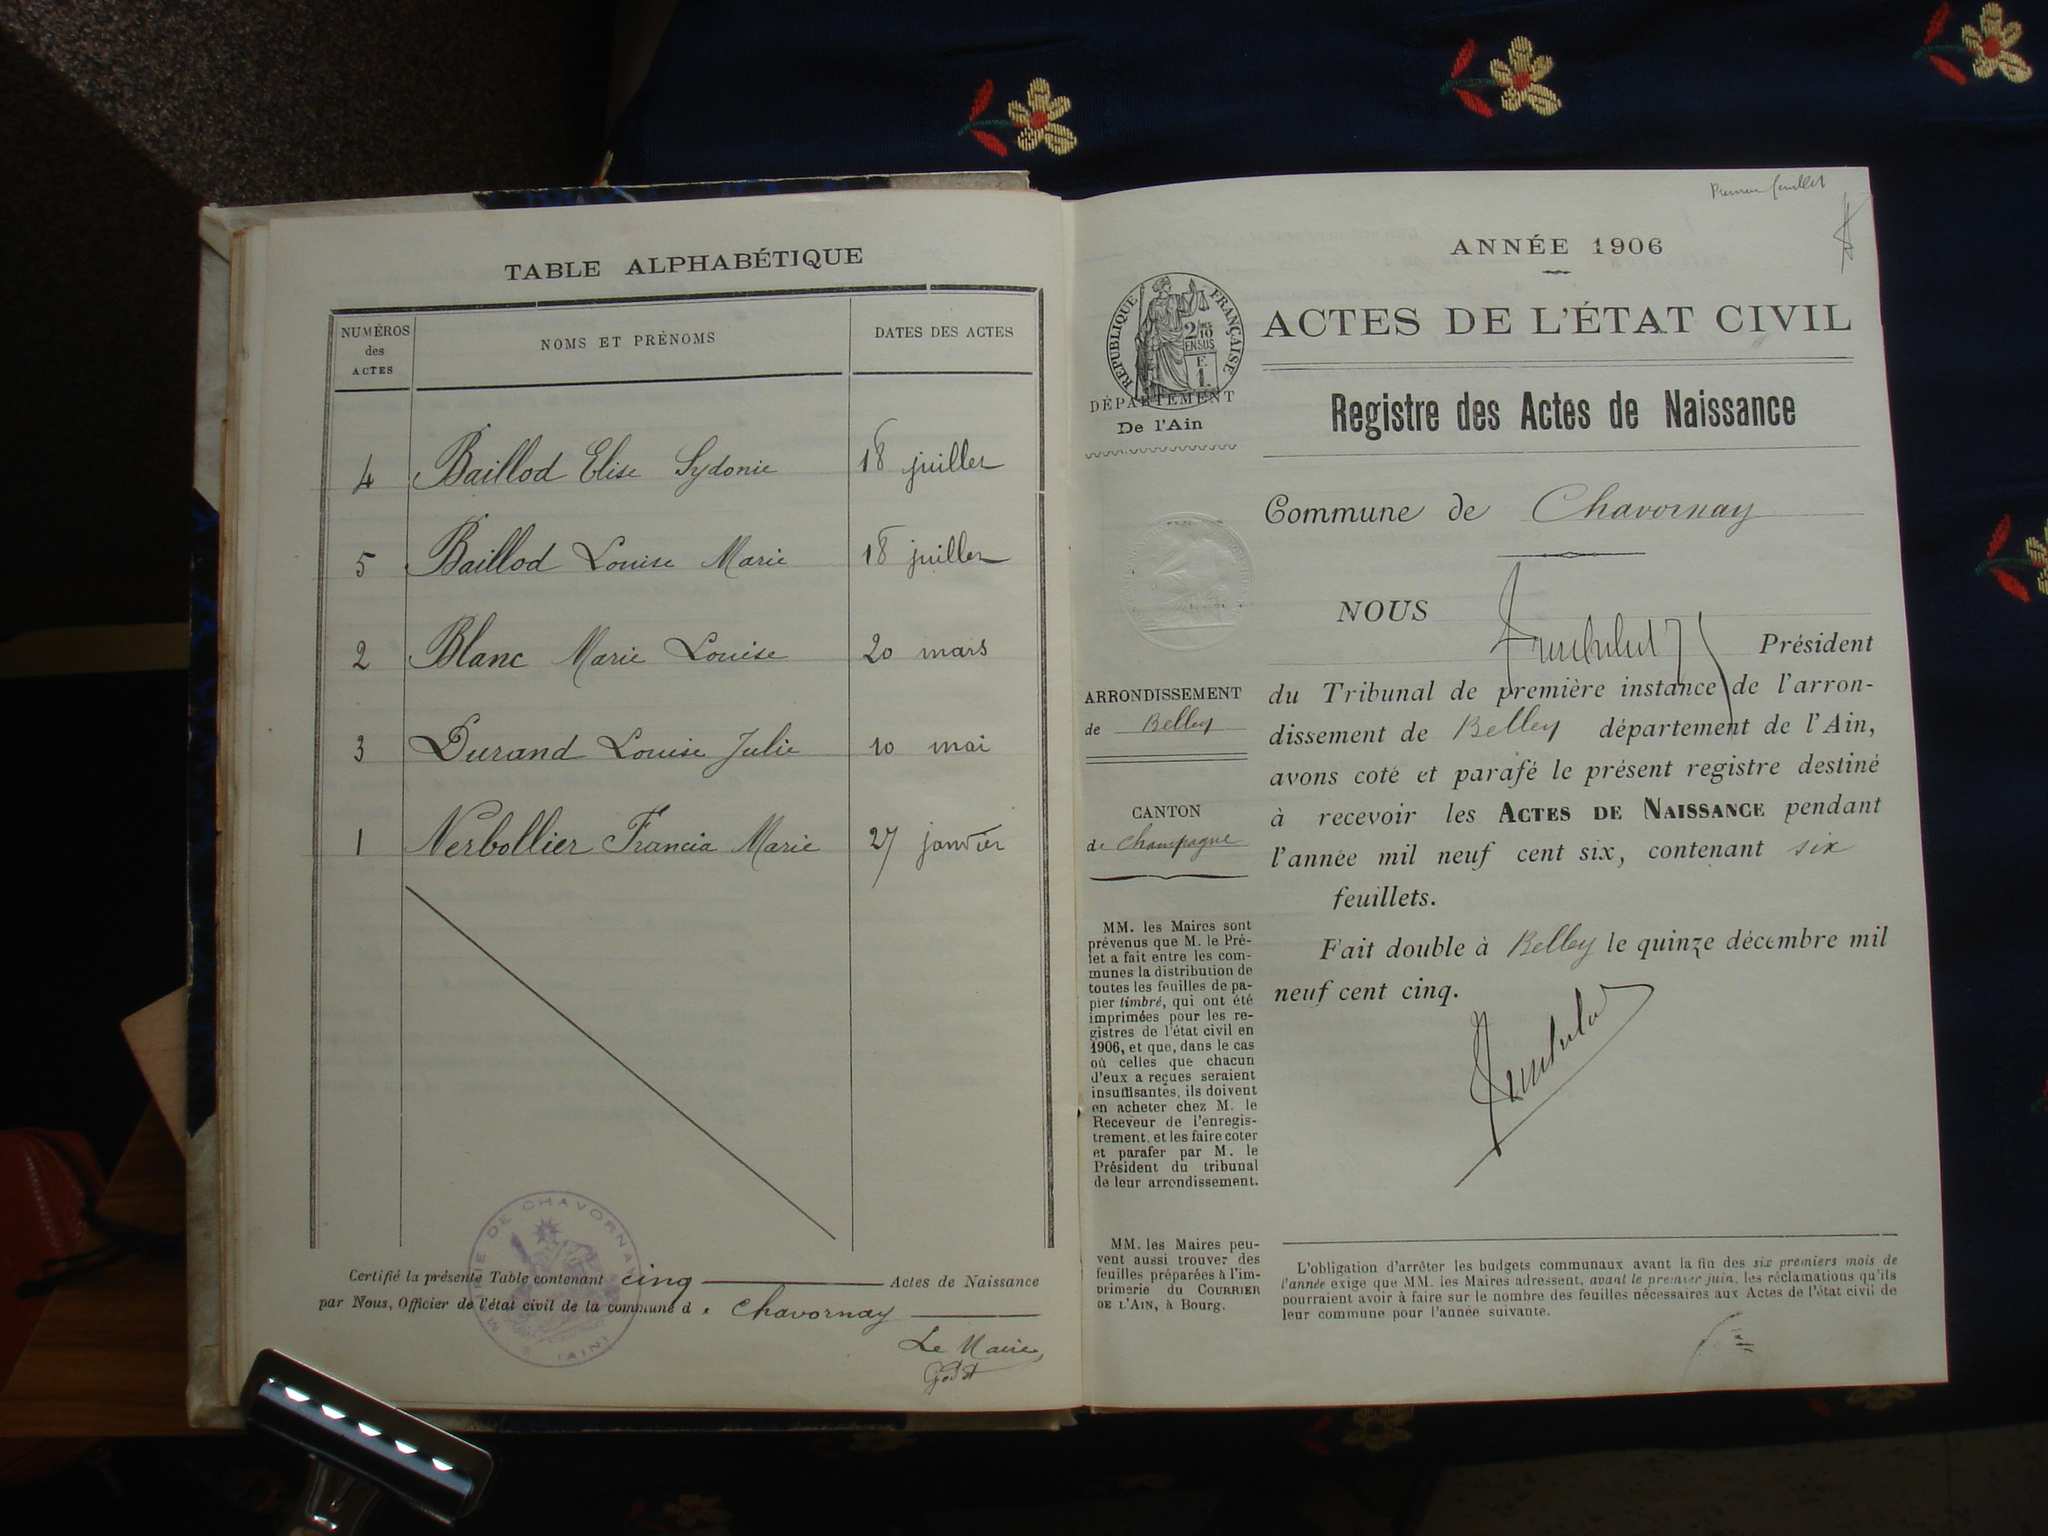 TABLE ALPHABÉTIQUE
NUMÉROS
des
ACTES
NOMS ET PRÉNOMS
DATES DES ACTES
4 Baillod Elise Sydonie 18 juillet
5 Baillod Louise Marie 18 juillet
2 Blanc Marie Louise 20 mars
3 Durand Louise Julie 10 mai
1 Nerbollier Francia Marie 27 janvier
Certifié la présente Table contenant cinq Actes de Naissance
par Nous, Officier de l'état civil de la commune d e Chavornay
MAIRIE DE CHAVORNAY
(AIN)
Le Maire
Premier feuillet
ANNÉE 1906
RÉPUBLIQUE FRANÇAISE
2/10
EN SUS
F.
1.
ACTES DE L'ÉTAT CIVIL
DÉPARTEMENT
De l'Ain
Registre des Actes de Naissance
Commune de Chavornay
NOUS
Président
ARRONDISSEMENT
de Belley
du Tribunal de première instance de l'arron-
dissement de Belley département de l'Ain,
avons coté et parafé le présent registre destiné
à recevoir les ACTES DE NAISSANCE pendant
l'année mil neuf cent six, contenant six
feuillets.
Fait double à Belley le quinze décembre mil
neuf cent cinq.
CANTON
de Champagne
MM. les Maires sont
prévenus que M. le Pré-
let a fait entre les com-
munes la distribution de
toutes les feuilles de pa-
pier timbré, qui ont été
imprimées pour les re-
gistres de l'état civil en
1906, et que, dans le cas
où celles que chacun
d'eux a reçues seraient
insuffisantes, ils doivent
en acheter chez M. le
Receveur de l'enregis-
trement, et les faire coter
et parafer par M. le
Président du tribunal
de leur arrondissement.
MM. les Maires peu-
vent aussi trouver des
feuilles préparées à l'im-
primerie du COURRIER
DE L'AIN, à Bourg.
L'obligation d'arrêter les budgets communaux avant la fin des six premiers mois de
l'année exige que MM. les Maires adressent, avant le premier juin, les réclamations qu'ils
pourraient avoir à faire sur le nombre des feuilles nécessaires aux Actes de l'état civil de
leur commune pour l'année suivante.